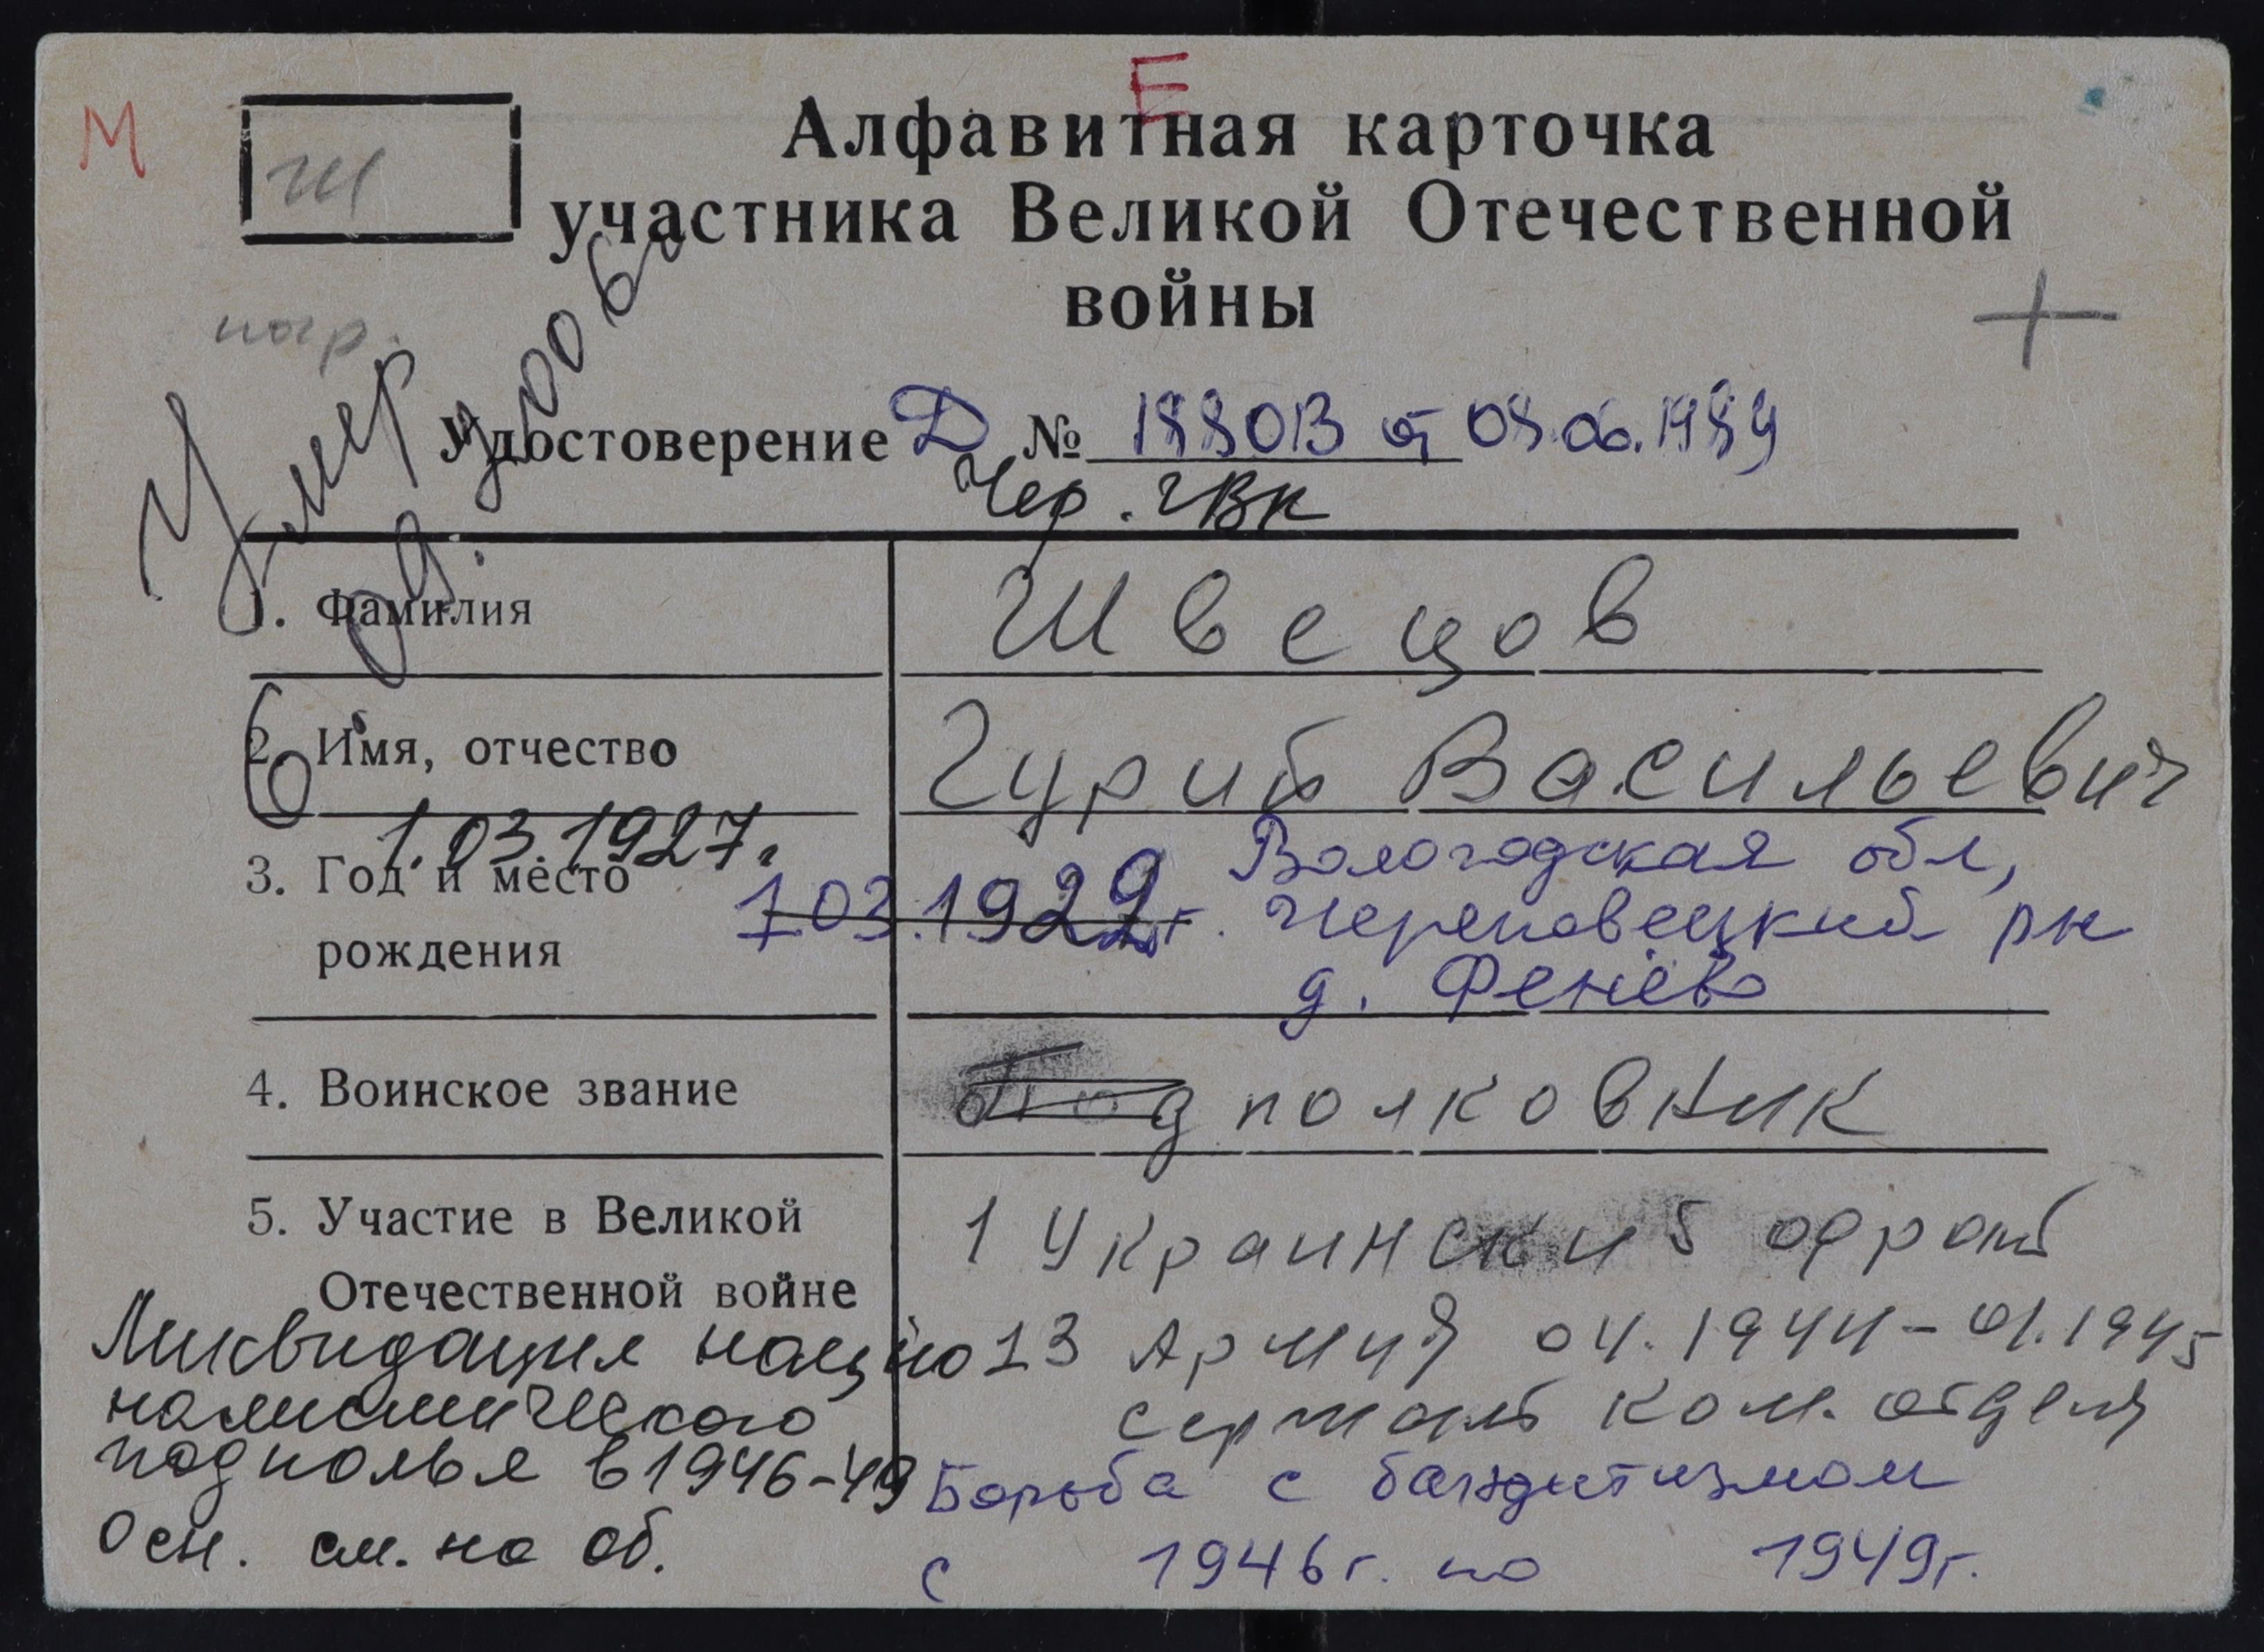 Е
М
Ш
Алфавитная карточка
участника Великой Отечественной
войны
погр.
Умер
6.09.2006г
Удостоверение Д № 188013 от 08.06.1989
Чер. ГВК
1. Фамилия Швецов
2. Имя, отчество Гурий Васильевич
1.03.1927г.
3. Год и место рождения 7.03.1922г. Вологодская обл,
Череповецкий рн
д. Фенёво
4. Воинское звание Подполковник
5. Участие в Великой Отечественной войне 1 Украинский фронт
13 Армия 04.1944-01.1945
сержант ком. отделя
Борьба с бандитизмом
с 1946г. по 1949г.
Ликвидация нацио
налистического
подполья в 1946-49
Осн. см. на об.